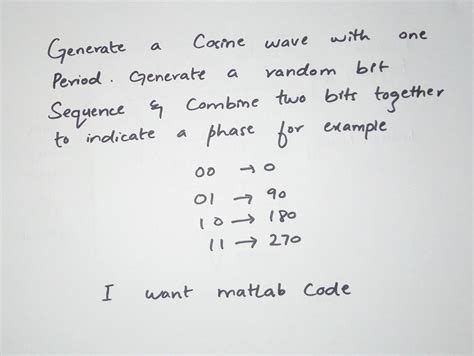 Generate a Cosine wave with one
Period. Generate a random bit
Sequence & Combine two bits together
to indicate a phase for example
00 → 0
01 → 90
10 → 180
11 → 270
I want matlab Code